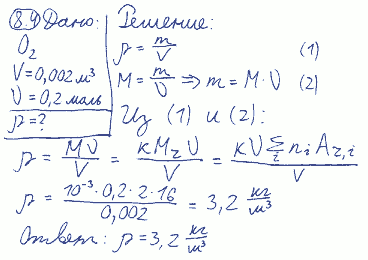 8.9 Дано:
O₂
V=0,002 м³
υ=0,2 моль
ρ=?
Решение:
ρ = m/V (1)
M = m/υ ⇒ m = M·υ (2)
Из (1) и (2):
ρ = Mυ/V = кM_rυ/V = кυ∑_i n_i A_{r,i}/V
ρ = 10⁻³·0,2·2·16/0,002 = 3,2 кг/м³
Ответ: ρ=3,2 кг/м³